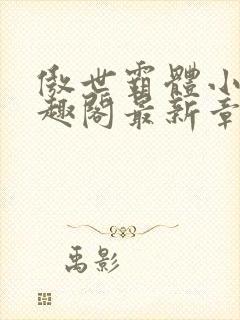 傲世霸體小
趣閣最新章
禹影